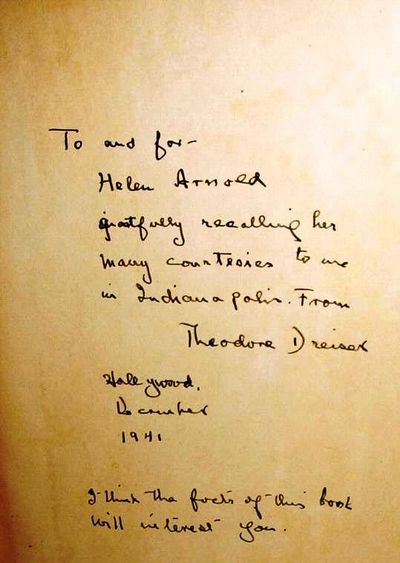 To and for-
Helen Arnold
gratfully recalling her
many courtesies to me
in Indianapolis. From
Theodore Dreiser
Hollywood,
December
1941
I think the facts of this book
will interest you.